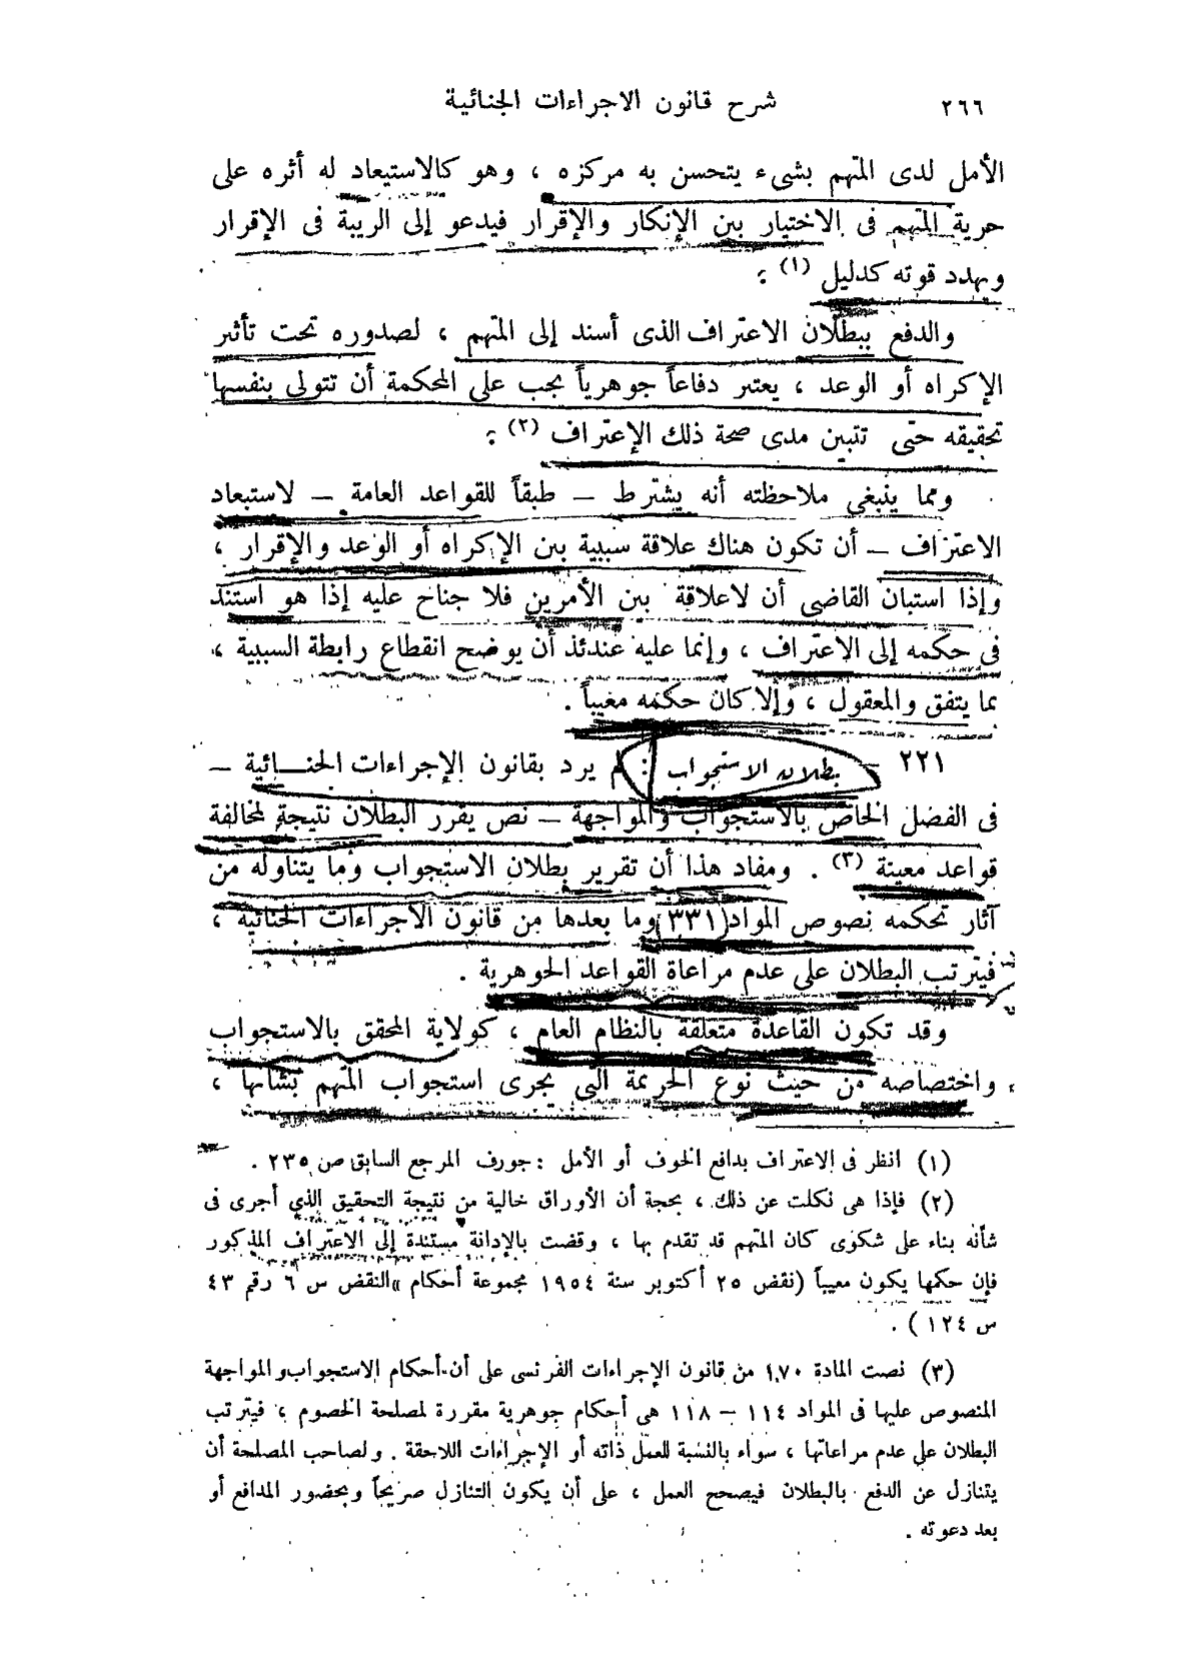 ٢٦٦
شرح قانون الاجراءات الجنائية
الأمل لدى المتهم بشىء يتحسن به مركزه ، وهو كالاستيعاد له أثره على
حرية المتهم فى الاختيار بين الإنكار والإقرار فيدعو إلى الريبة فى الإقرار
ويهدد قوته كدليل (١) .
والدفع ببطلان الاعتراف الذى أسند إلى المتهم ، لصدوره تحت تأثير
الإكراه أو الوعد ، يعتبر دفاعاً جوهرياً يجب على المحكمة أن تتولى بنفسها
تحقيقه حتى تتبين مدى صحة ذلك الإعتراف (٢) .
ومما ينبغى ملاحظته أنه يشترط – طبقاً للقواعد العامة – لاستبعاد
الاعتراف – أن تكون هناك علاقة سببية بين الإكراه أو الوعد والإقرار ،
وإذا استبان القاضى أن لاعلاقة بين الأمرين فلا جناح عليه إذا هو استند
فى حكمه إلى الاعتراف ، وإنما عليه عندئذ أن يوضح انقطاع رابطة السببية ،
بما يتفق والمعقول ، وإلا كان حكمه معيباً .
٢٢١ – بطلان الاستجواب : لم يرد بقانون الإجراءات الجنــائية –
فى الفصل الخاص بالاستجواب والمواجهة – نص يقرر البطلان نتيجة لمخالفة
قواعد معينة (٣) . ومفاد هذا أن تقرير بطلان الاستجواب وما يتناوله من
آثار تحكمه نصوص المواد (٣٣١) وما بعدها من قانون الاجراءات الجنائية ،
فيترتب البطلان على عدم مراعاة القواعد الجوهرية .
وقد تكون القاعدة متعلقة بالنظام العام ، كولاية المحقق بالاستجواب
واختصاصه من حيث نوع الجريمة التى يجرى استجواب المتهم بشأنها ،
(١) انظر فى الاعتراف بدافع الخوف أو الأمل : جورف المرجع السابق ص ٢٣٥ .
(٢) فإذا هى نكلت عن ذلك ، بحجة أن الأوراق خالية من نتيجة التحقيق الذي أجرى فى
شأنه بناء على شكوى كان المتهم قد تقدم بها ، وقضت بالإدانة مستندة إلى الاعتراف المذكور
فإن حكمها يكون معيباً (نقض ٢٥ أكتوبر سنة ١٩٥٤ مجموعة أحكام النقض س ٦ رقم ٤٣
ص ١٢٤) .
(٣) نصت المادة ١٧٠ من قانون الإجراءات الفرنسى على أن أحكام الاستجواب والمواجهة
المنصوص عليها فى المواد ١١٤ – ١١٨ هى أحكام جوهرية مقررة لمصلحة الخصوم ، فيترتب
البطلان على عدم مراعاتها ، سواء بالنسبة للعمل ذاته أو الإجراءات اللاحقة . ولصاحب المصلحة أن
يتنازل عن الدفع بالبطلان فيصحح العمل ، على أن يكون التنازل صريحاً وبحضور المدافع أو
بعد دعوته .